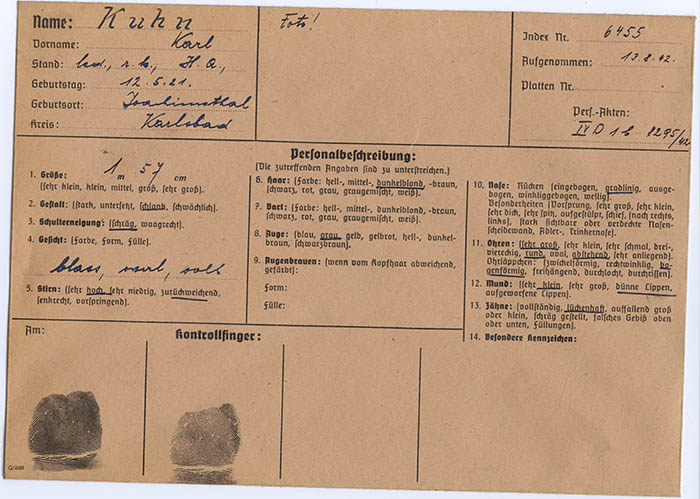 Name: Kuhn
Vorname: Karl
Stand: led., r. k., H. A.,
Geburtstag: 12.5.21.
Geburtsort: Joachimsthal
Kreis: Karlsbad
Foto!
Index Nr. 6455
Aufgenommen: 13.8.42.
Platten Nr.
Pers.-Akten:
IV D 1b 8295/42
Personalbeschreibung:
(Die zutreffenden Angaben sind zu unterstreichen.)
1. Größe: 1 m 57 cm
(sehr klein, klein, mittel, groß, sehr groß).
2. Gestalt: (stark, untersetzt, schlank, schwächlich).
3. Schulterneigung: (schräg, waagrecht).
4. Gesicht: (Farbe, Form, Fülle).
blass, oval, voll
5. Stirn: (sehr hoch, sehr niedrig, zurückweichend,
senkrecht, vorspringend).
6. Haar: (Farbe: hell-, mittel-, dunkelblond, -braun,
schwarz, rot, grau, graugemischt, weiß).
7. Bart: (Farbe: hell-, mittel-, dunkelblond, -braun,
schwarz, rot, grau, graugemischt, weiß).
8. Auge: (blau, grau, gelb, gelbrot, hell-, dunkel-
braun, schwarzbraun).
9. Augenbrauen: (wenn vom Kopfhaar abweichend,
gefärbt):
Form:
Fülle:
10. Nase: Rücken (eingebogen, gradlinig, ausge-
bogen, winkliggebogen, wellig).
Besonderheiten (Vorsprung, sehr groß, sehr klein,
sehr dick, sehr spitz, aufgestülpt, schief, (nach rechts,
links), stark sichtbare oder verdeckte Nasen-
scheidewand, Adler-, Trinkernase).
11. Ohren: (sehr groß, sehr klein, sehr schmal, drei-,
viereckig, rund, oval, abstehend, sehr anliegend).
Ohrläppchen: (zwickelförmig, rechtwinklig, bo-
genförmig, freihängend, durchlocht, durchrissen).
12. Mund: (sehr klein, sehr groß, dünne Lippen,
aufgeworfene Lippen).
13. Zähne: (vollständig, lückenhaft, auffallend groß
oder klein, schräg gestellt, falsches Gebiß oben
oder unten, Füllungen).
14. Besondere Kennzeichen:
Am:
Kontrollfinger: